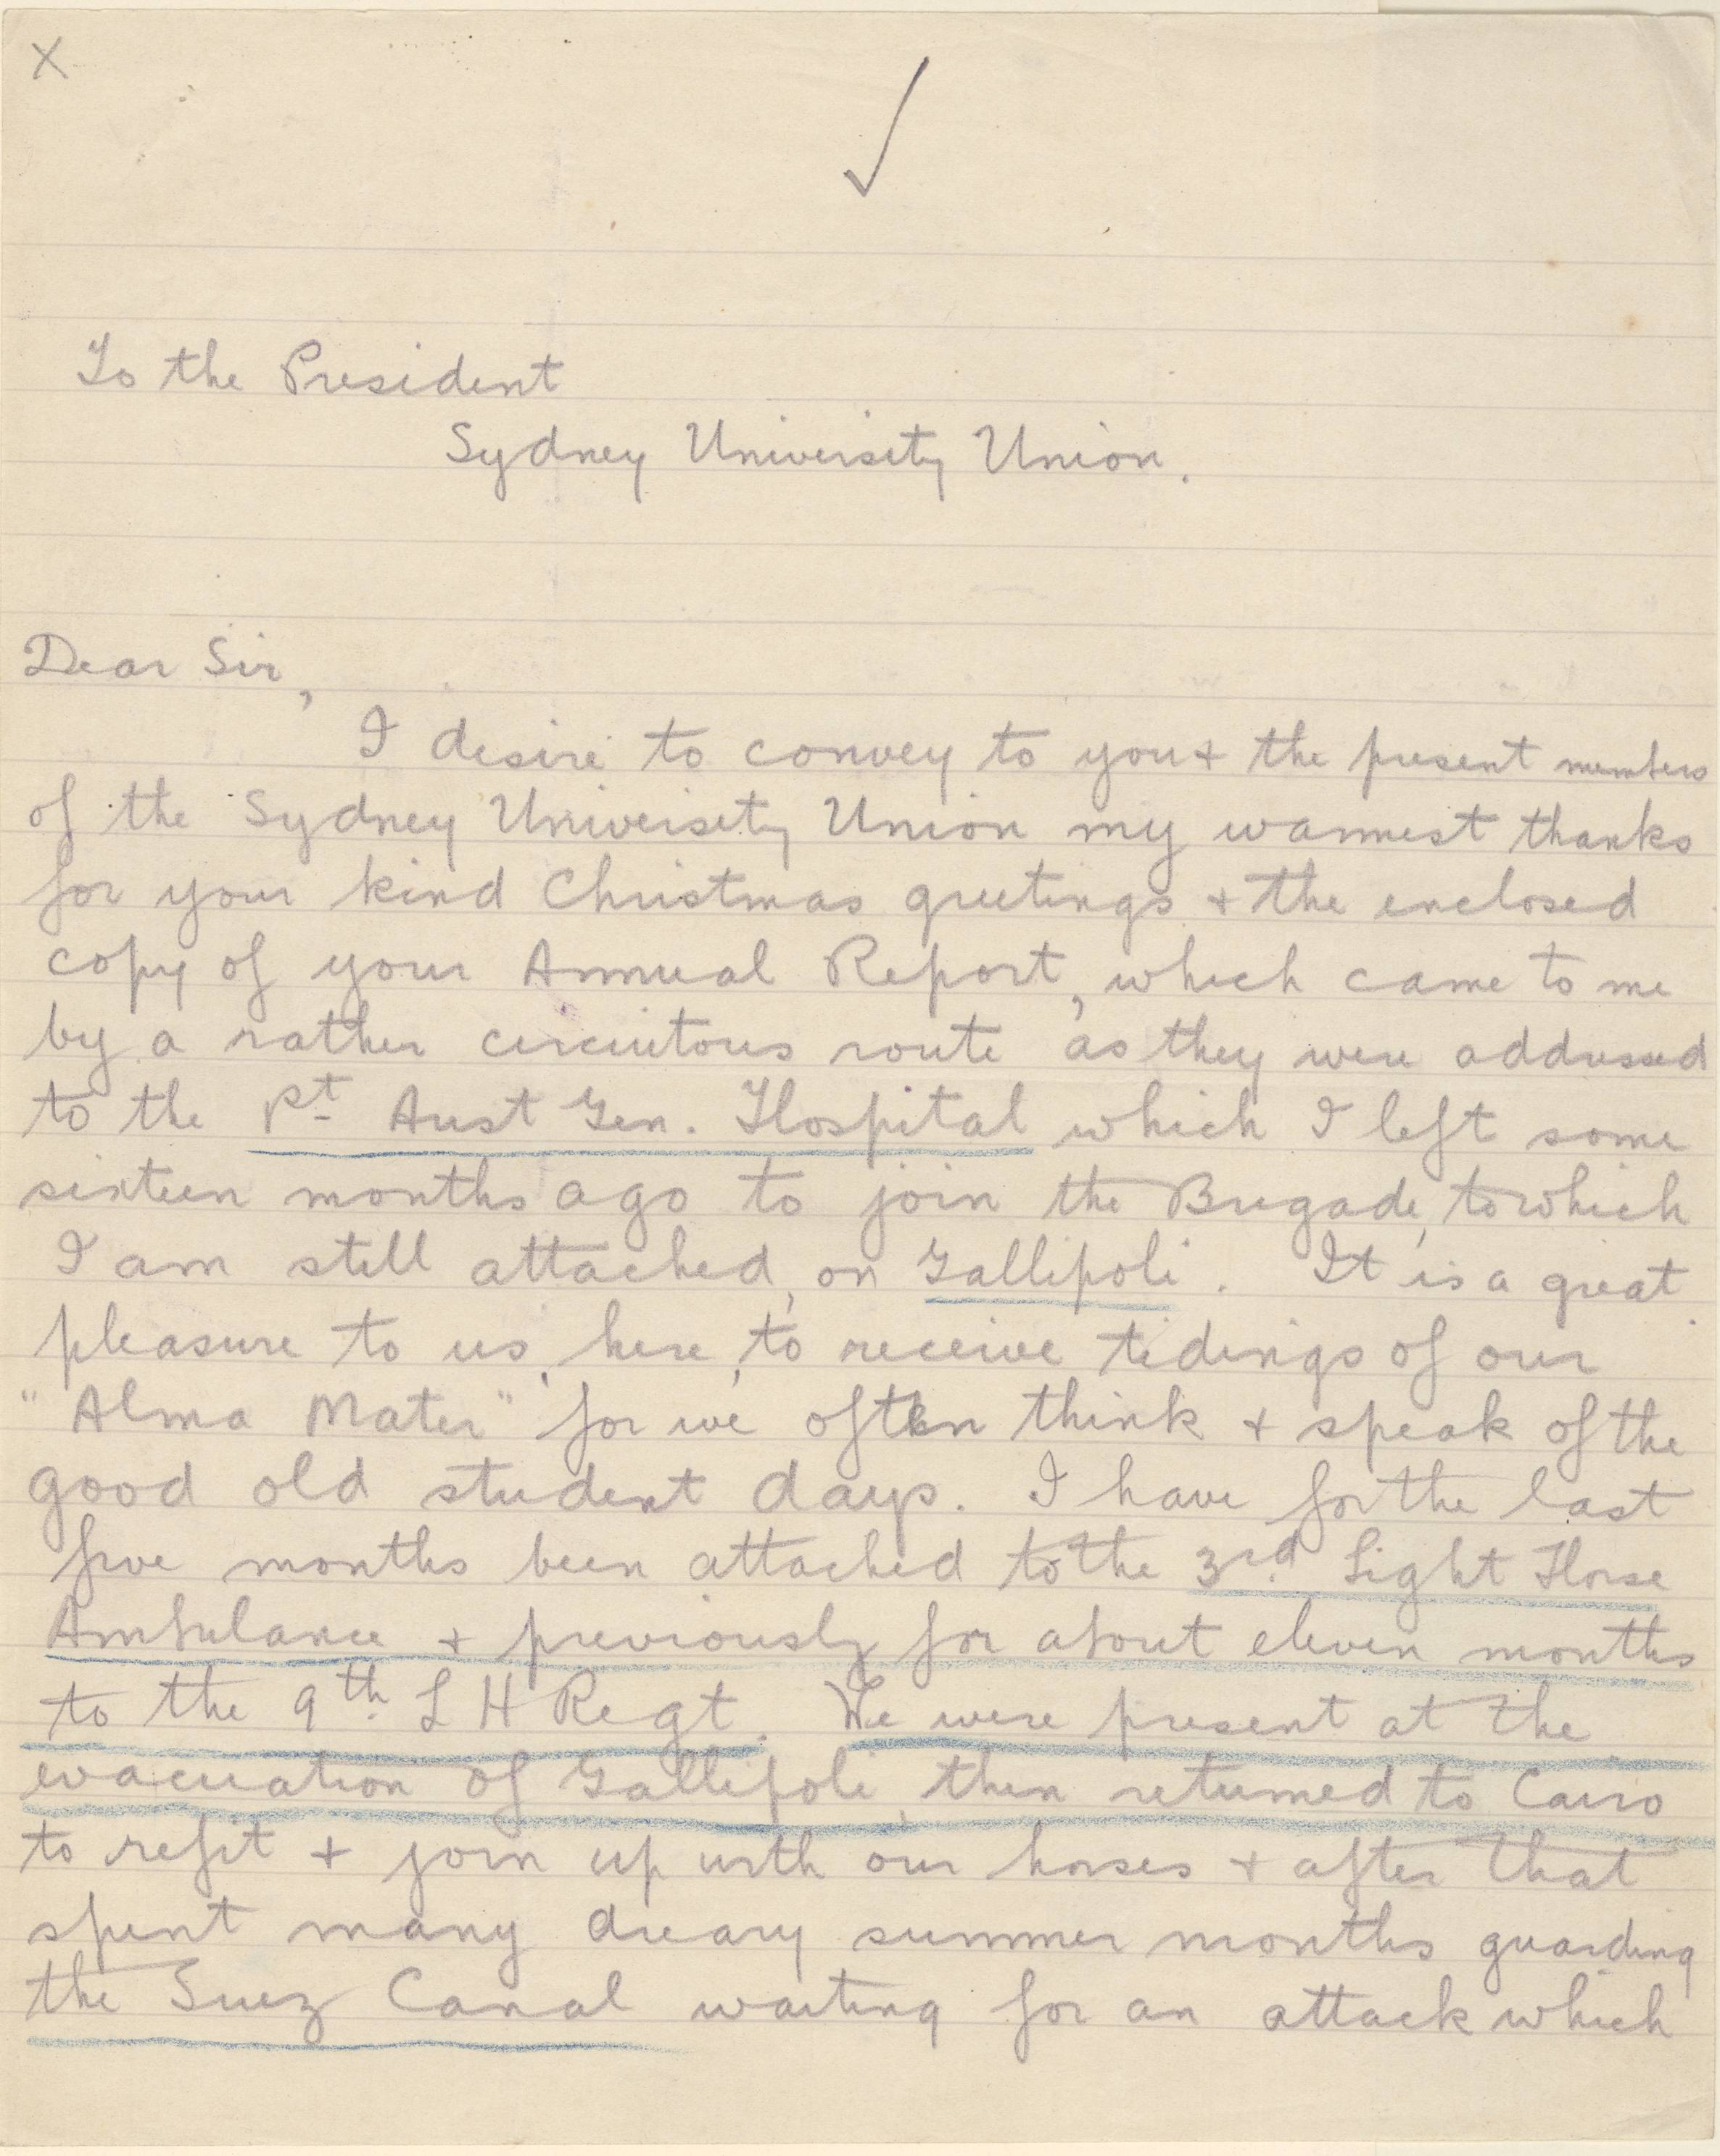 X
To the President
Sydney University Union.
Dear Sir,
I desire to convey to you + the present members
of the Sydney University Union my warmest thanks
for your kind Christmas greetings + the enclosed
copy of your Annual Report, which came to me
by a rather circuitous route as they were addressed
to the 1st Aust Gen. Hospital which I left some
sixteen months ago to join the Brigade, to which
I am still attached, on Gallipoli. It is a great
pleasure to us, here, to receive tidings of our
"Alma Mater" for we often think + speak of the
good old student days. I have for the last
five months been attached to the 3rd. Light Horse
Ambulance + previously for about eleven months
to the 9th. L H Regt. We were present at the
evacuation of Gallipoli, then returned to Cairo
to refit + join up with our horses + after that
spent many dreary summer months guarding
the Suez Canal waiting for an attack which